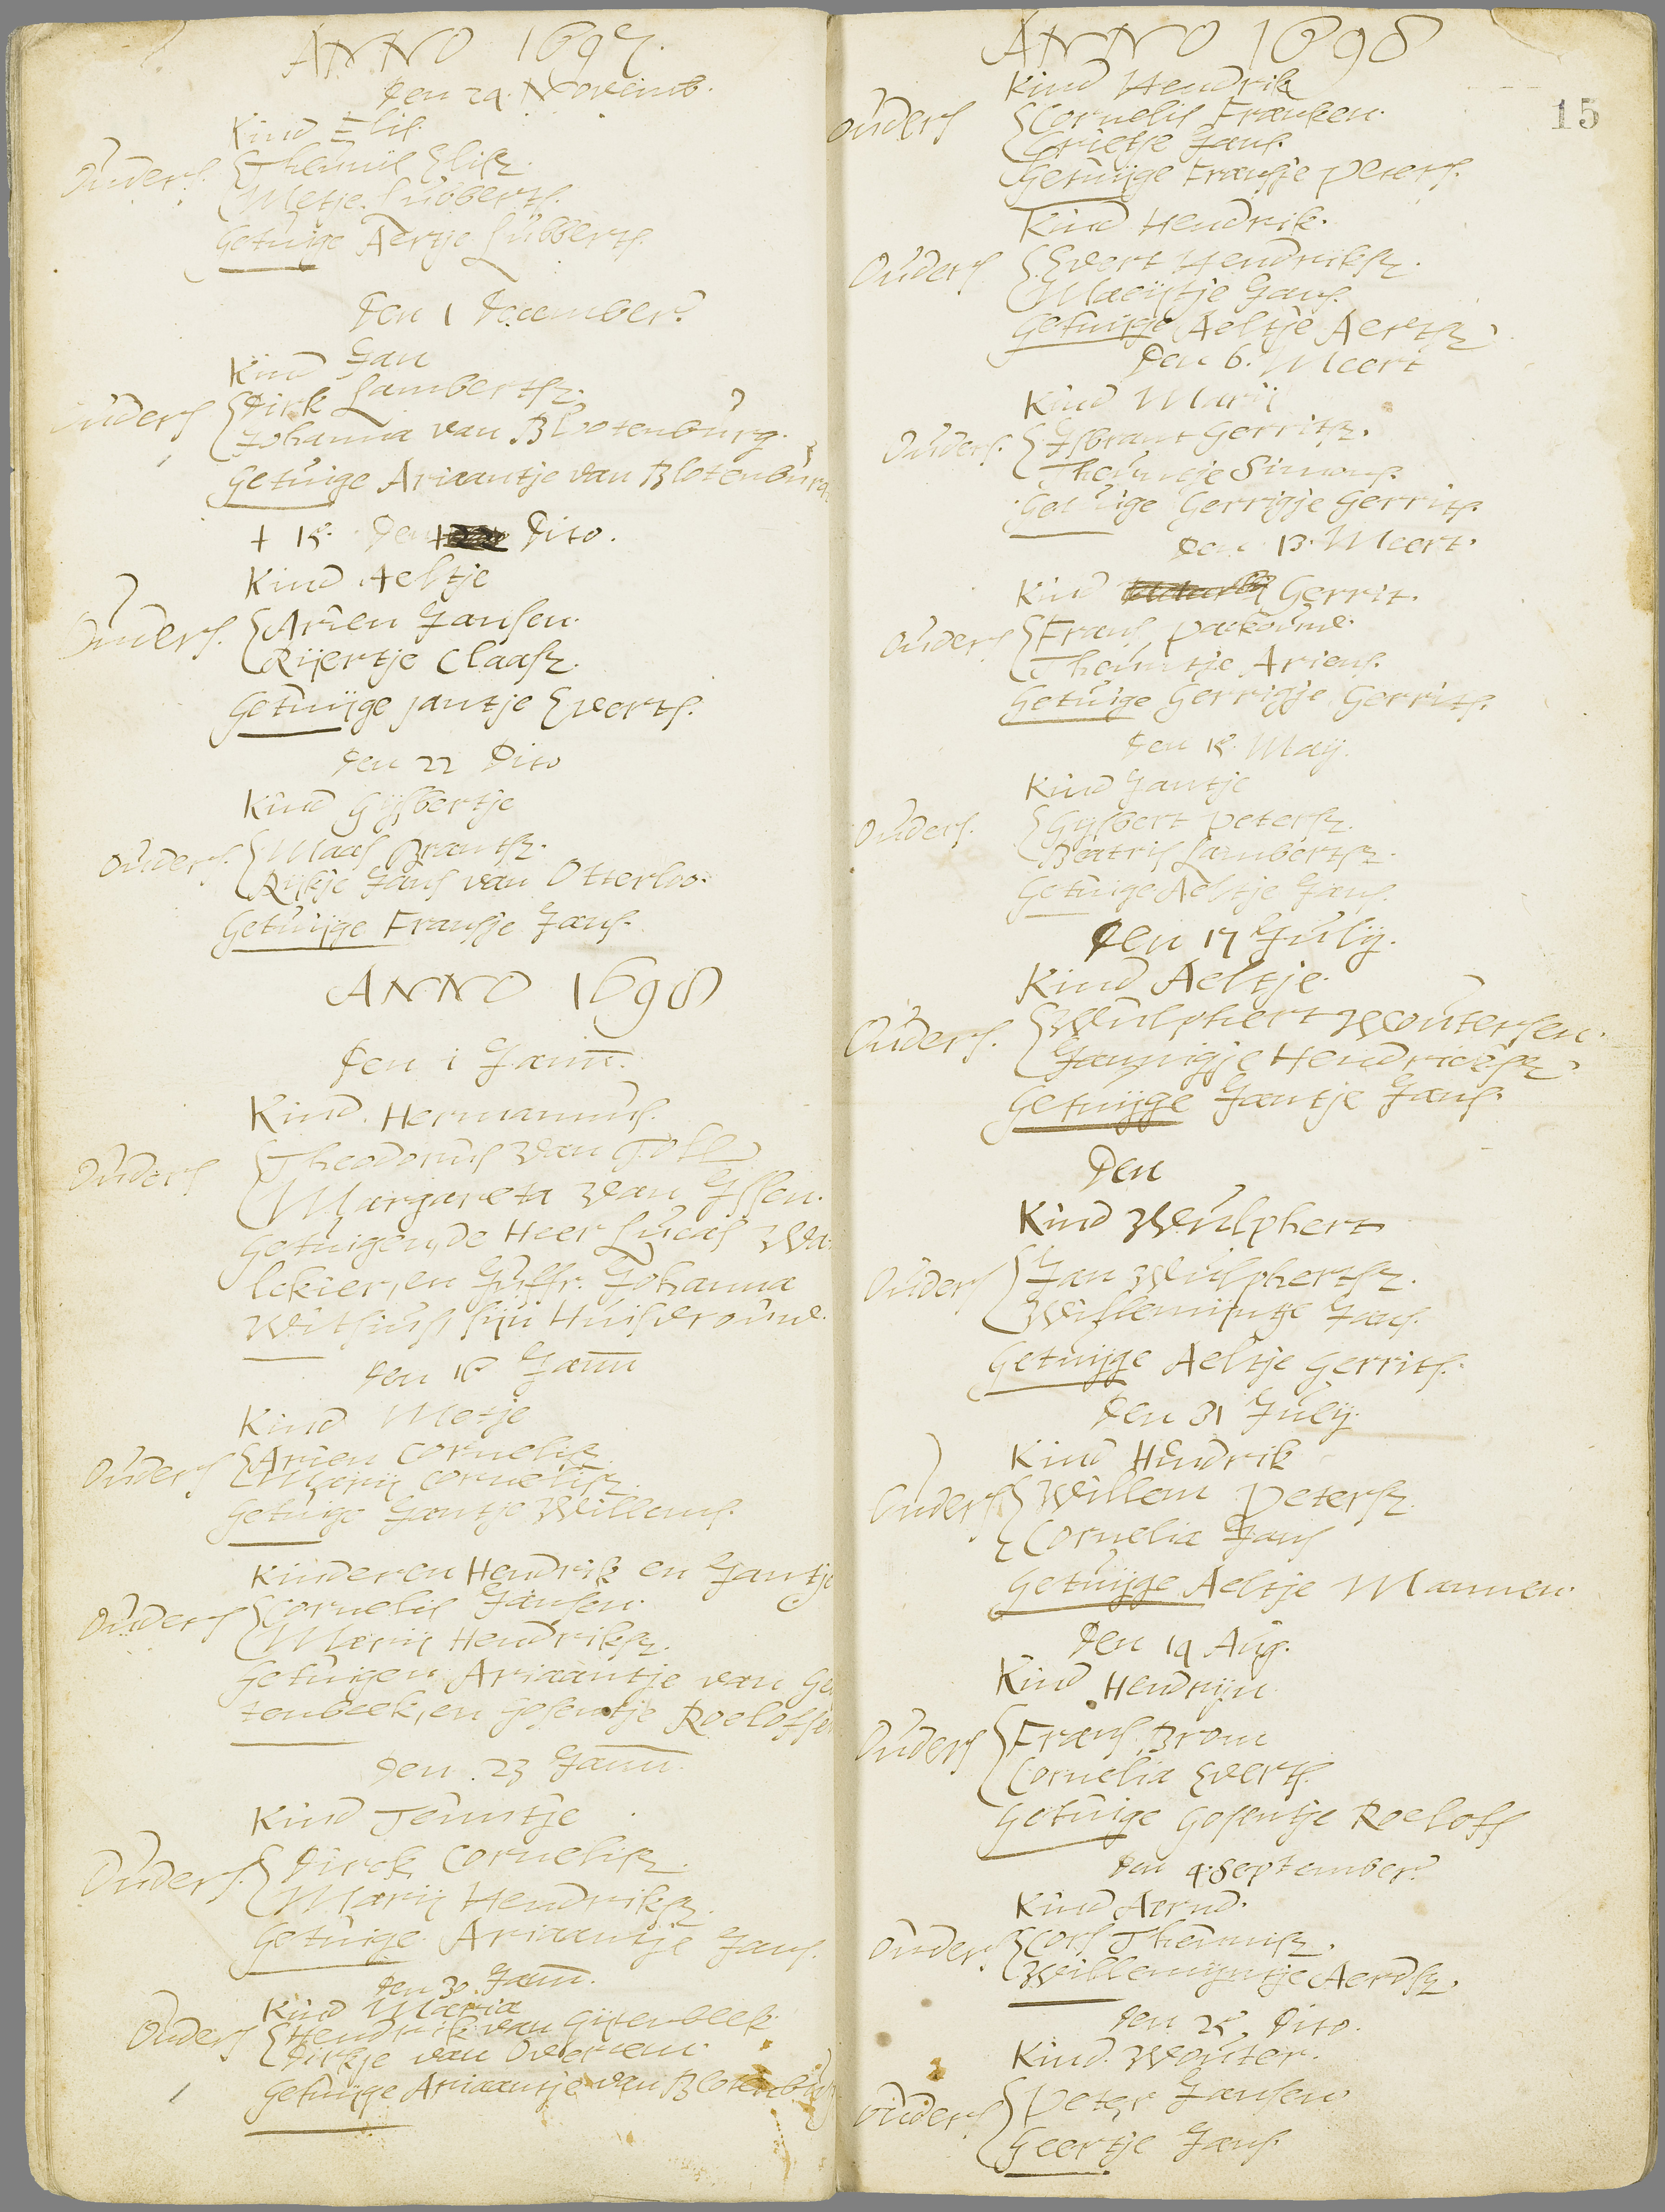 ANNO 1697.
Den 29. Novemb.
Kind Elis.
Ouders. Theunis Elisz.
Metje Lubberts.
Getuige Aertje Lubberts.
Den 1 December.
Kind Jan
Ouders Dirk Lambertsz.
Johanna van Blotenburg.
Getuige Ariaantje van Blotenburg
+ 15. Den Dito.
Kind Aeltje
Ouders. Arien Jansen.
Rijertje Claasz.
Getuijge Jantje Everts.
Den 22 Dito
Kind Gijsbertje
Ouders. Maas Brantsz.
Rijkje Jans van Otterloo.
Getuijge Fransje Jans.
ANNO 1698
Den 1 Janu.
Kind. Hermannus.
Ouders Theodorus van Toll
Margareta van Essen.
Getuigen, de Heer Lucas Wa
lekier, en Juffr. Johanna
Withuis sijn Huisvrouwe.
Den 16 Janu
Kind Metje
Ouders Arien Cornelisz
Marij Cornelisz.
Getuige Jantje Willems.
Kinderen Hendrik en Jantje
Ouders Cornelis Jansen.
Marij Hendriksz.
Getuigen Ariaantje van Ge
tenbeek, en Gosentje Roelofsen
Den 23 Janu.
Kind Teuntje
Ouders. Dirck Cornelisz.
Marij Hendriksz.
Getuige Ariaantje Jans.
Den 30. Janu.
Kind Maria
Ouders Hendrik van Gijtenbeek
Dirkje van Overeem.
Getuijge Ariaantje van Blotenburg
ANNO 1698
15
Kind Hendrik
Ouders Cornelis Franken.
Grietje Jans.
Getuijge Fransje Peters.
Kind Hendrik.
Ouders Evert Hendriksz.
Maeijtje Jans.
Getuijge Aeltje Aertsz
Den 6. Meert
Kind Marij
Ouders. Isbrant Gerritsz.
Theuntje Simonsz
Getuige Gerrigje Gerrits.
Den 13. Meert.
Kind Gerrit.
Ouders Frans Patkouwe.
Theuntje Ariens.
Getuige Gerrigje Gerrits.
Den 15. Maij.
Kind Jantje
Ouders. Gijsbert Petersz.
Beatris Lambertsz.
Getuige Aeltje Jans.
Den 17 Julij.
Kind Aeltje.
Ouders. Wulphert Woutersen.
Jannigje Hendricksz
Getuijge Jantje Jans.
Den
Kind Wulphert
Ouders Jan Wulphertsz.
Willemijntje Jans.
Getuijge Aeltje Gerrits.
Den 31 Julij.
Kind Hendrik
Ouders Willem Petersz
Cornelia Jans
Getuijge Aeltje Mannen.
Den 14 Aug.
Kind Hendrijn
Ouders Frans Brom
Cornelia Everts.
Getuige Gosentje Roelofs
Den 4. September.
Kind Aernd.
Ouders Cors Theunisz.
Willemijntje Aerdsz.
Den 25 Dito.
Kind. Wouter.
Ouders Peter Jansen
Geertje Jans.